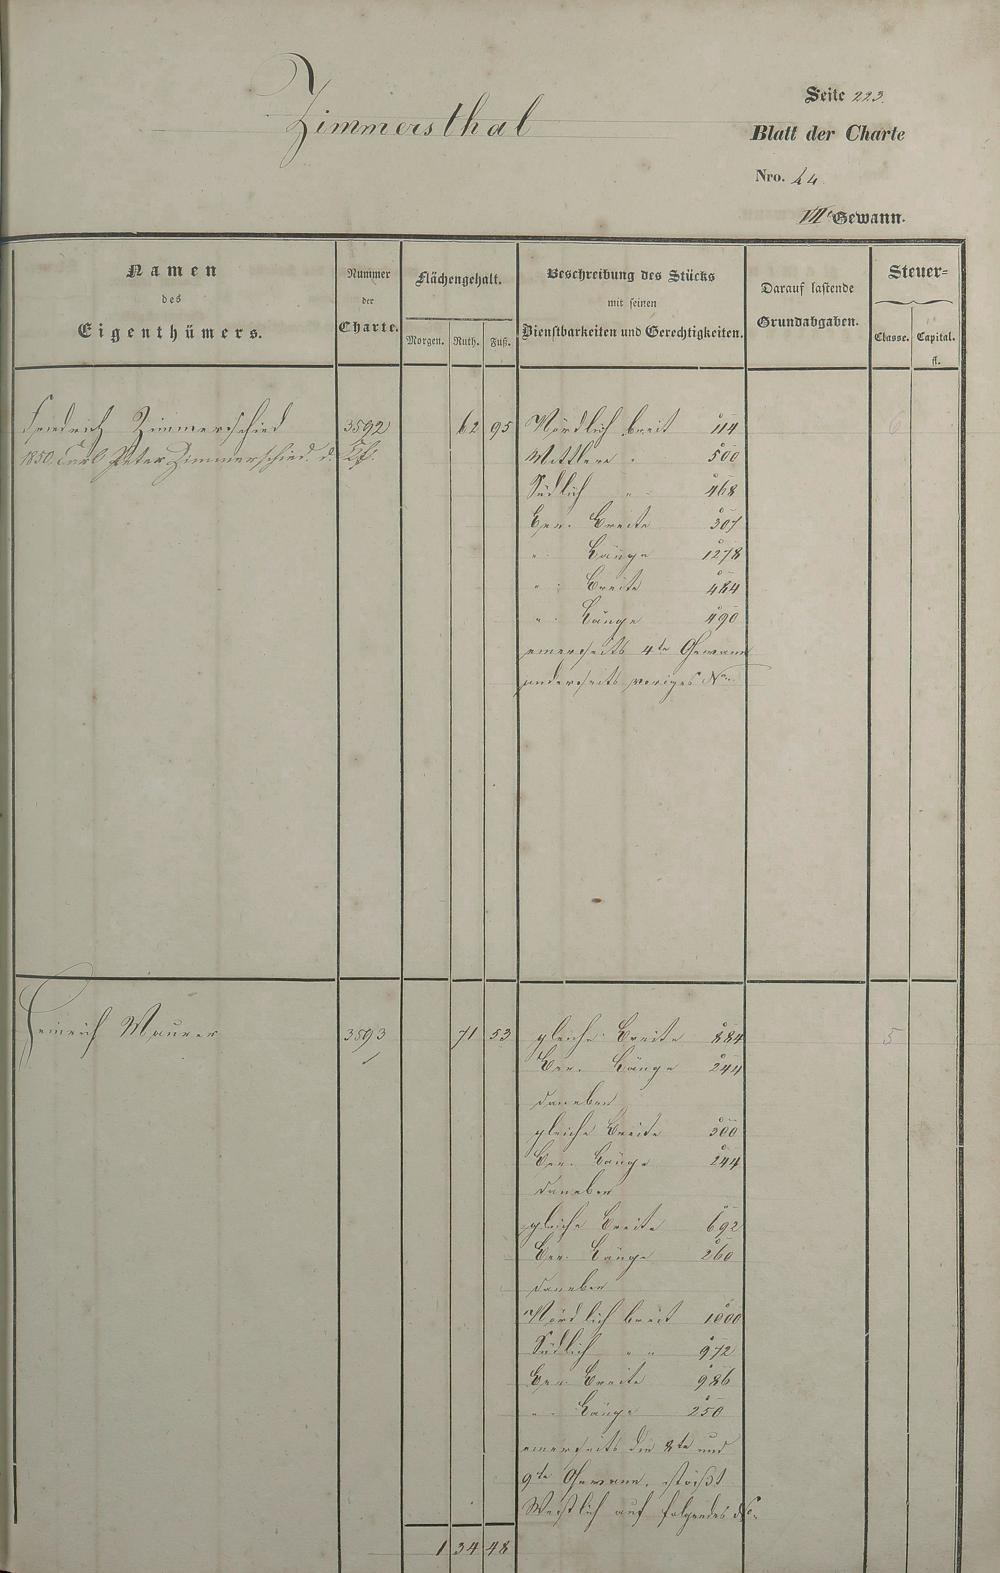 Zimmersthal
Seite 223.
Blatt der Charte
Nro. 24
VII Gewann.
Namen
des
Eigenthümers.
Nummer
der
Charte.
Flächengehalt.
Morgen. Ruth. Fuß.
Beschreibung des Stücks
mit seinen
Dienstbarkeiten und Gerechtigkeiten.
Darauf lastende
Grundabgaben.
Steuer=
Classe. Capital.
fl.
Friedrich Zimmerschied 3592 62 95 Nördlich breit 114 6
1850. Carl Peter Zimmerschied. d. Mittlere " 500
Südlich " 468
Ber. Breite 307
" Länge 1278
" Breite 484
" Länge 490
einerseits 4te Gewann
anderseits voriges No.
Heinrich Maurer 3593 71 53 gleiche Breite 884 5
Ber. Länge 244
daneben
gleiche Breite 300
Ber. Länge 244
daneben
gleiche Breite 692
Ber. Länge 260
daneben
Nördlich breit 1000
Südlich " " 972
Ber. Breite 986
" Länge 250
einerseits die 8te und
9te Gewann, stößt
Westlich auf folgendes No.
1 34 48